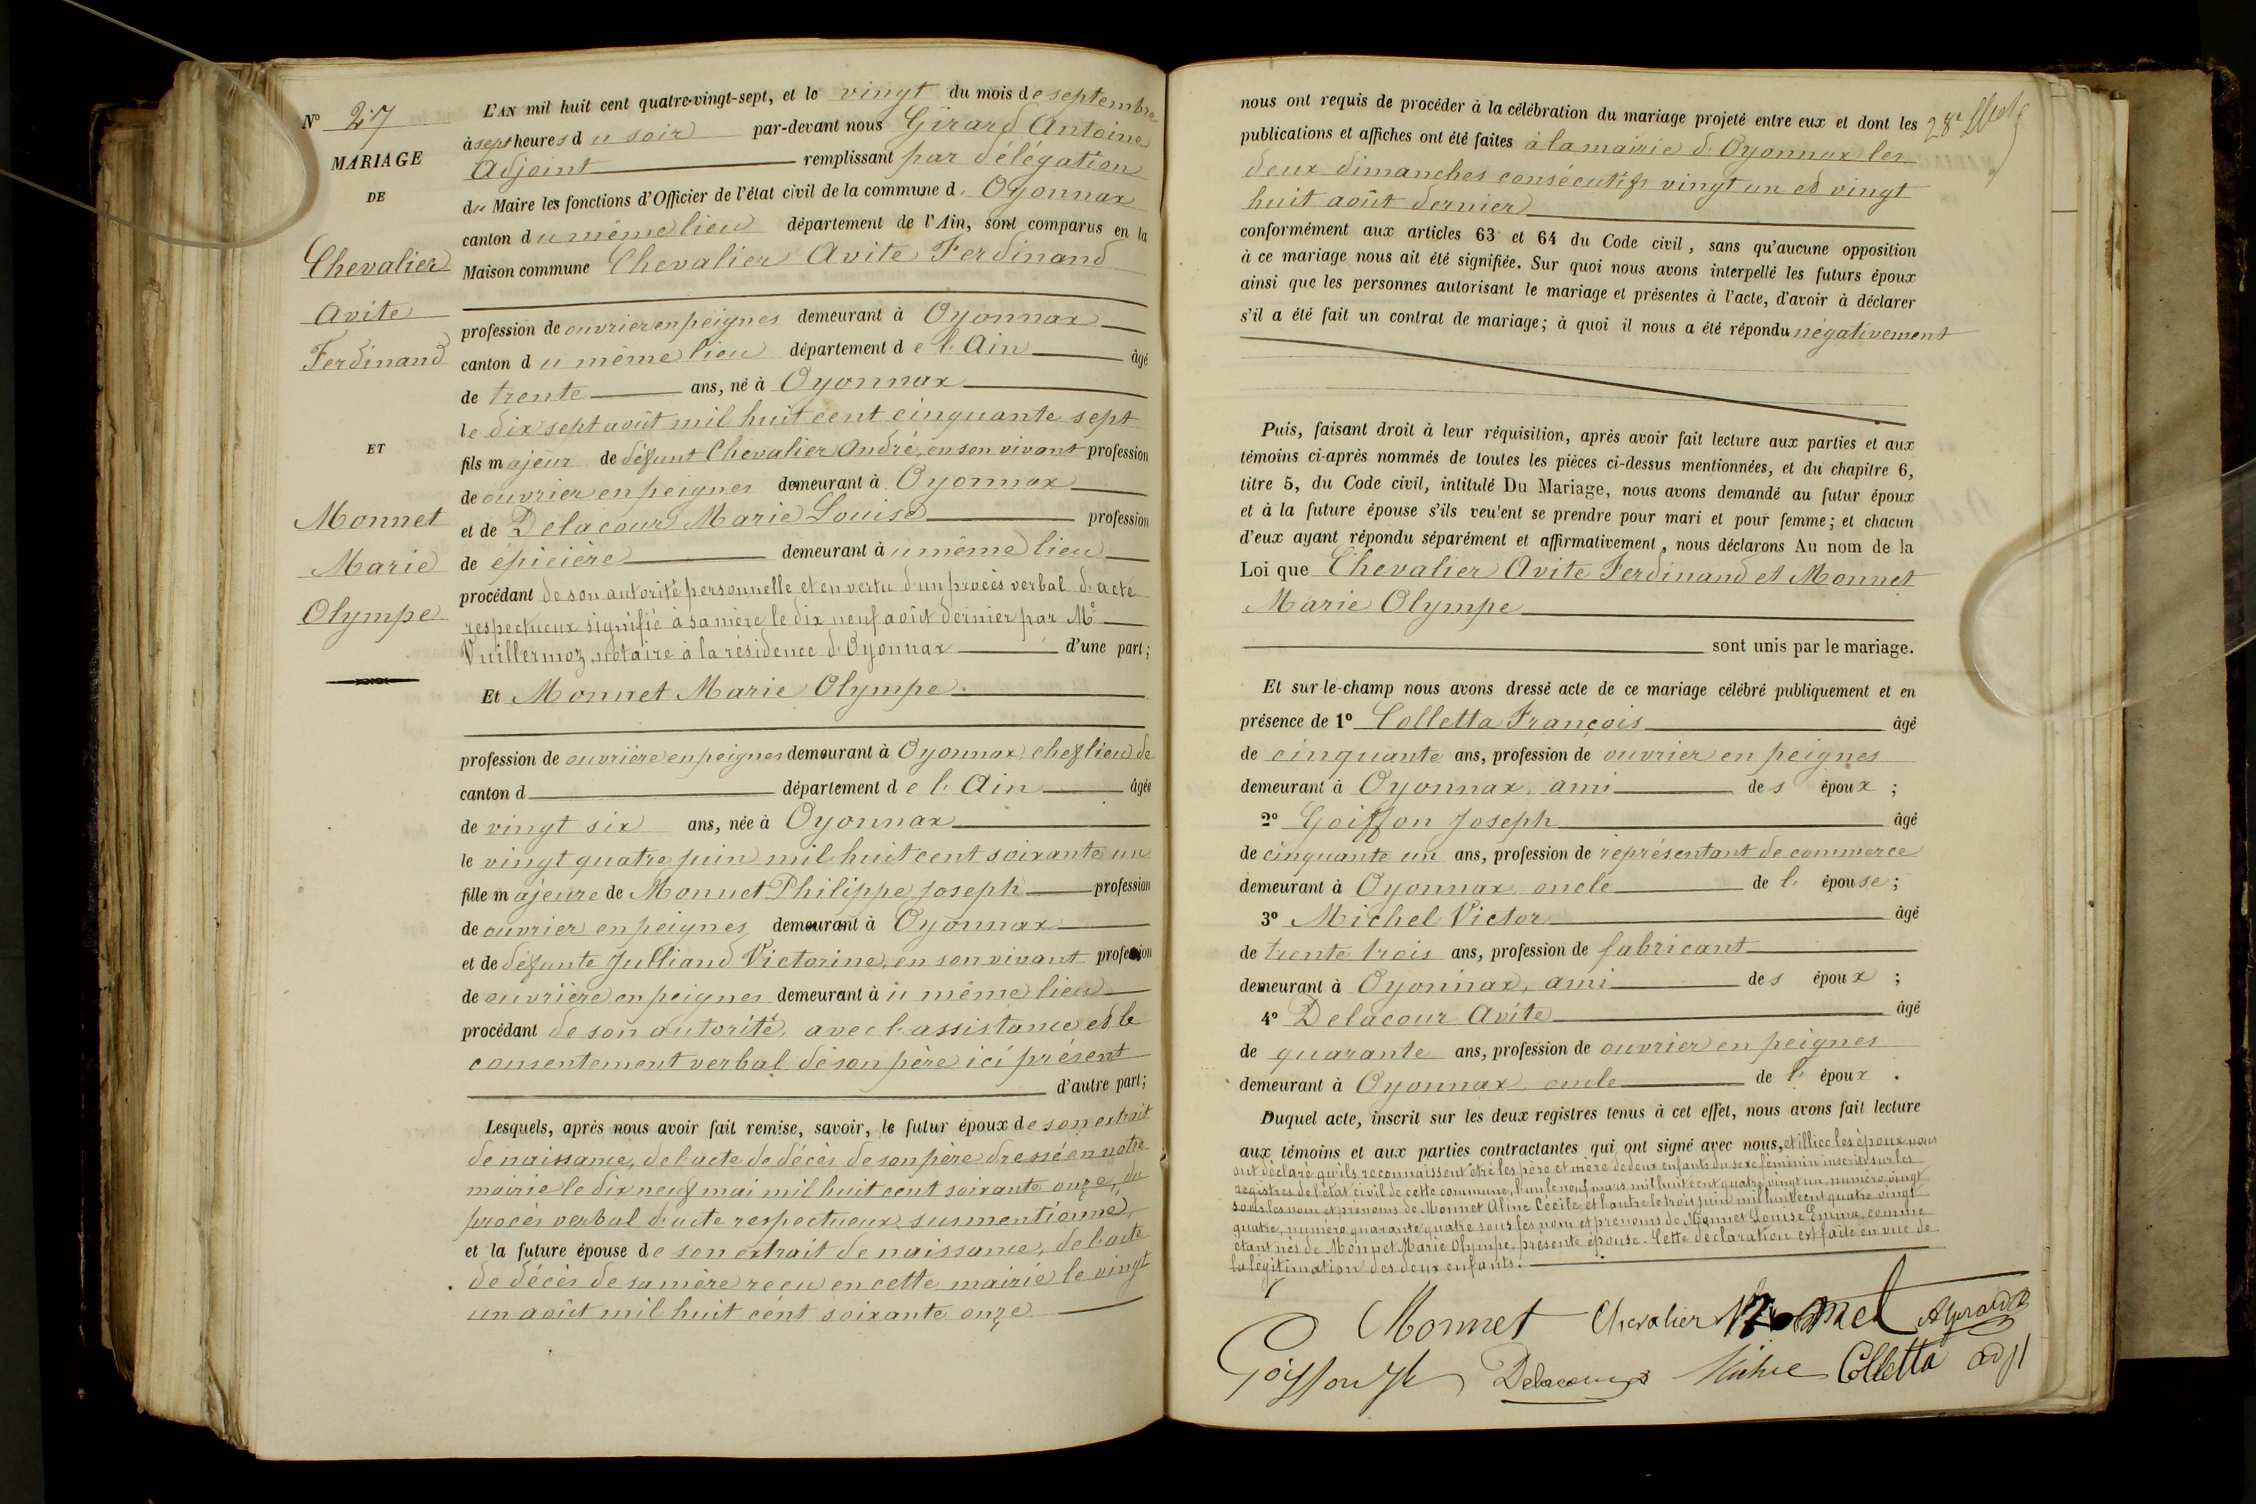 N° 27
MARIAGE
DE
Chevalier
Avite
Ferdinand
ET
Monnet
Marie
Olympe
L'AN mil huit cent quatre-vingt-sept, et le vingt du mois de septembre
à sept heures du soir par-devant nous Girard Antoine
Adjoint remplissant par délégation
du Maire les fonctions d'Officier de l'état civil de la commune d'Oyonnax
canton du même lieu département de l'Ain, sont comparus en la
Maison commune Chevalier Avite Ferdinand
profession de ouvrier en peignes demeurant à Oyonnax
canton du même lieu département de l'Ain âgé
de trente ans, né à Oyonnax
le dix sept août mil huit cent cinquante sept
fils majeur de défunt Chevalier André, en son vivant profession
de ouvrier en peignes demeurant à Oyonnax
et de Delacour Marie Louise profession
de épicière demeurant au même lieu
procédant de son autorité personnelle et en vertu d'un procès verbal d'acte
respectueux signifié à sa mère le dix neuf août dernier par Me
Vuillermoz, notaire à la résidence d'Oyonnax d'une part;
Et Monnet Marie Olympe
profession de ouvrière en peignes demeurant à Oyonnax, chef lieu de
canton d département de l'Ain âgée
de vingt six ans, née à Oyonnax
le vingt quatre juin mil huit cent soixante un
fille majeure de Monnet Philippe Joseph profession
de ouvrier en peignes demeurant à Oyonnax
et de défunte Julliand Victorine, en son vivant profession
de ouvrière en peignes demeurant à u même lieu
procédant de son autorité, avec l'assistance et le
consentement verbal de son père ici présent
d'autre part;
Lesquels, après nous avoir fait remise, savoir, le futur époux de son extrait
de naissance, de l'acte de décès de son père dressé en notre
mairie le dix neuf mai mil huit cent soixante onze, du
procès verbal d'acte respectueux susmentionné,
et la future épouse de son extrait de naissance, de l'acte
de décès de sa mère reçu en cette mairie le vingt
un août mil huit cent soixante onze
nous ont requis de procéder à la célébration du mariage projeté entre eux et dont les
publications et affiches ont été faites à la mairie d'Oyonnax les
deux dimanches consécutifs vingt un et vingt
huit août dernier
conformément aux articles 63 et 64 du Code civil, sans qu'aucune opposition
à ce mariage nous ait été signifiée. Sur quoi nous avons interpellé les futurs époux
ainsi que les personnes autorisant le mariage et présentes à l'acte, d'avoir à déclarer
s'il a été fait un contrat de mariage; à quoi il nous a été répondu négativement
Puis, faisant droit à leur réquisition, après avoir fait lecture aux parties et aux
témoins ci-après nommés de toutes les pièces ci-dessus mentionnées, et du chapitre 6,
titre 5, du Code civil, intitulé Du Mariage, nous avons demandé au futur époux
et à la future épouse s'ils veulent se prendre pour mari et pour femme; et chacun
d'eux ayant répondu séparément et affirmativement, nous déclarons Au nom de la
Loi que Chevalier Avite Ferdinand et Monnet
Marie Olympe
sont unis par le mariage.
Et sur-le-champ nous avons dressé acte de ce mariage célébré publiquement et en
présence de 1° Colletta François âgé
de cinquante ans, profession de ouvrier en peignes
demeurant à Oyonnax, ami des époux ;
2° Goiffon Joseph âgé
de cinquante un ans, profession de représentant de commerce
demeurant à Oyonnax oncle de l'épouse;
3° Michel Victor âgé
de trente trois ans, profession de fabricant
demeurant à Oyonnax, ami des époux ;
4° Delacour Avite âgé
de quarante ans, profession de ouvrier en peignes
demeurant à Oyonnax oncle de l'époux .
Duquel acte, inscrit sur les deux registres tenus à cet effet, nous avons fait lecture
aux témoins et aux parties contractantes qui ont signé avec nous, et illico les époux nous
ont déclaré qu'ils reconnaissent être les père et mère de deux enfants du sexe féminin inscrits sur les
registres de l'état civil de cette commune, l'un le neuf mars mil huit cent quatre vingt un numéro vingt
sous les nom et prénoms de Monnet Aline Cécile et l'autre le trois juin mil huit cent quatre vingt
quatre, numéro quarante quatre sous les nom et prénoms de Monnet Louise Emma, comme
étant nés de Monnet Marie Olympe, présente épouse. Cette déclaration est faite en vue de
la légitimation des deux enfants.
Monnet Chevalier Monnet AGirard
Goiffon Jh Delacour Michel Colletta adjt